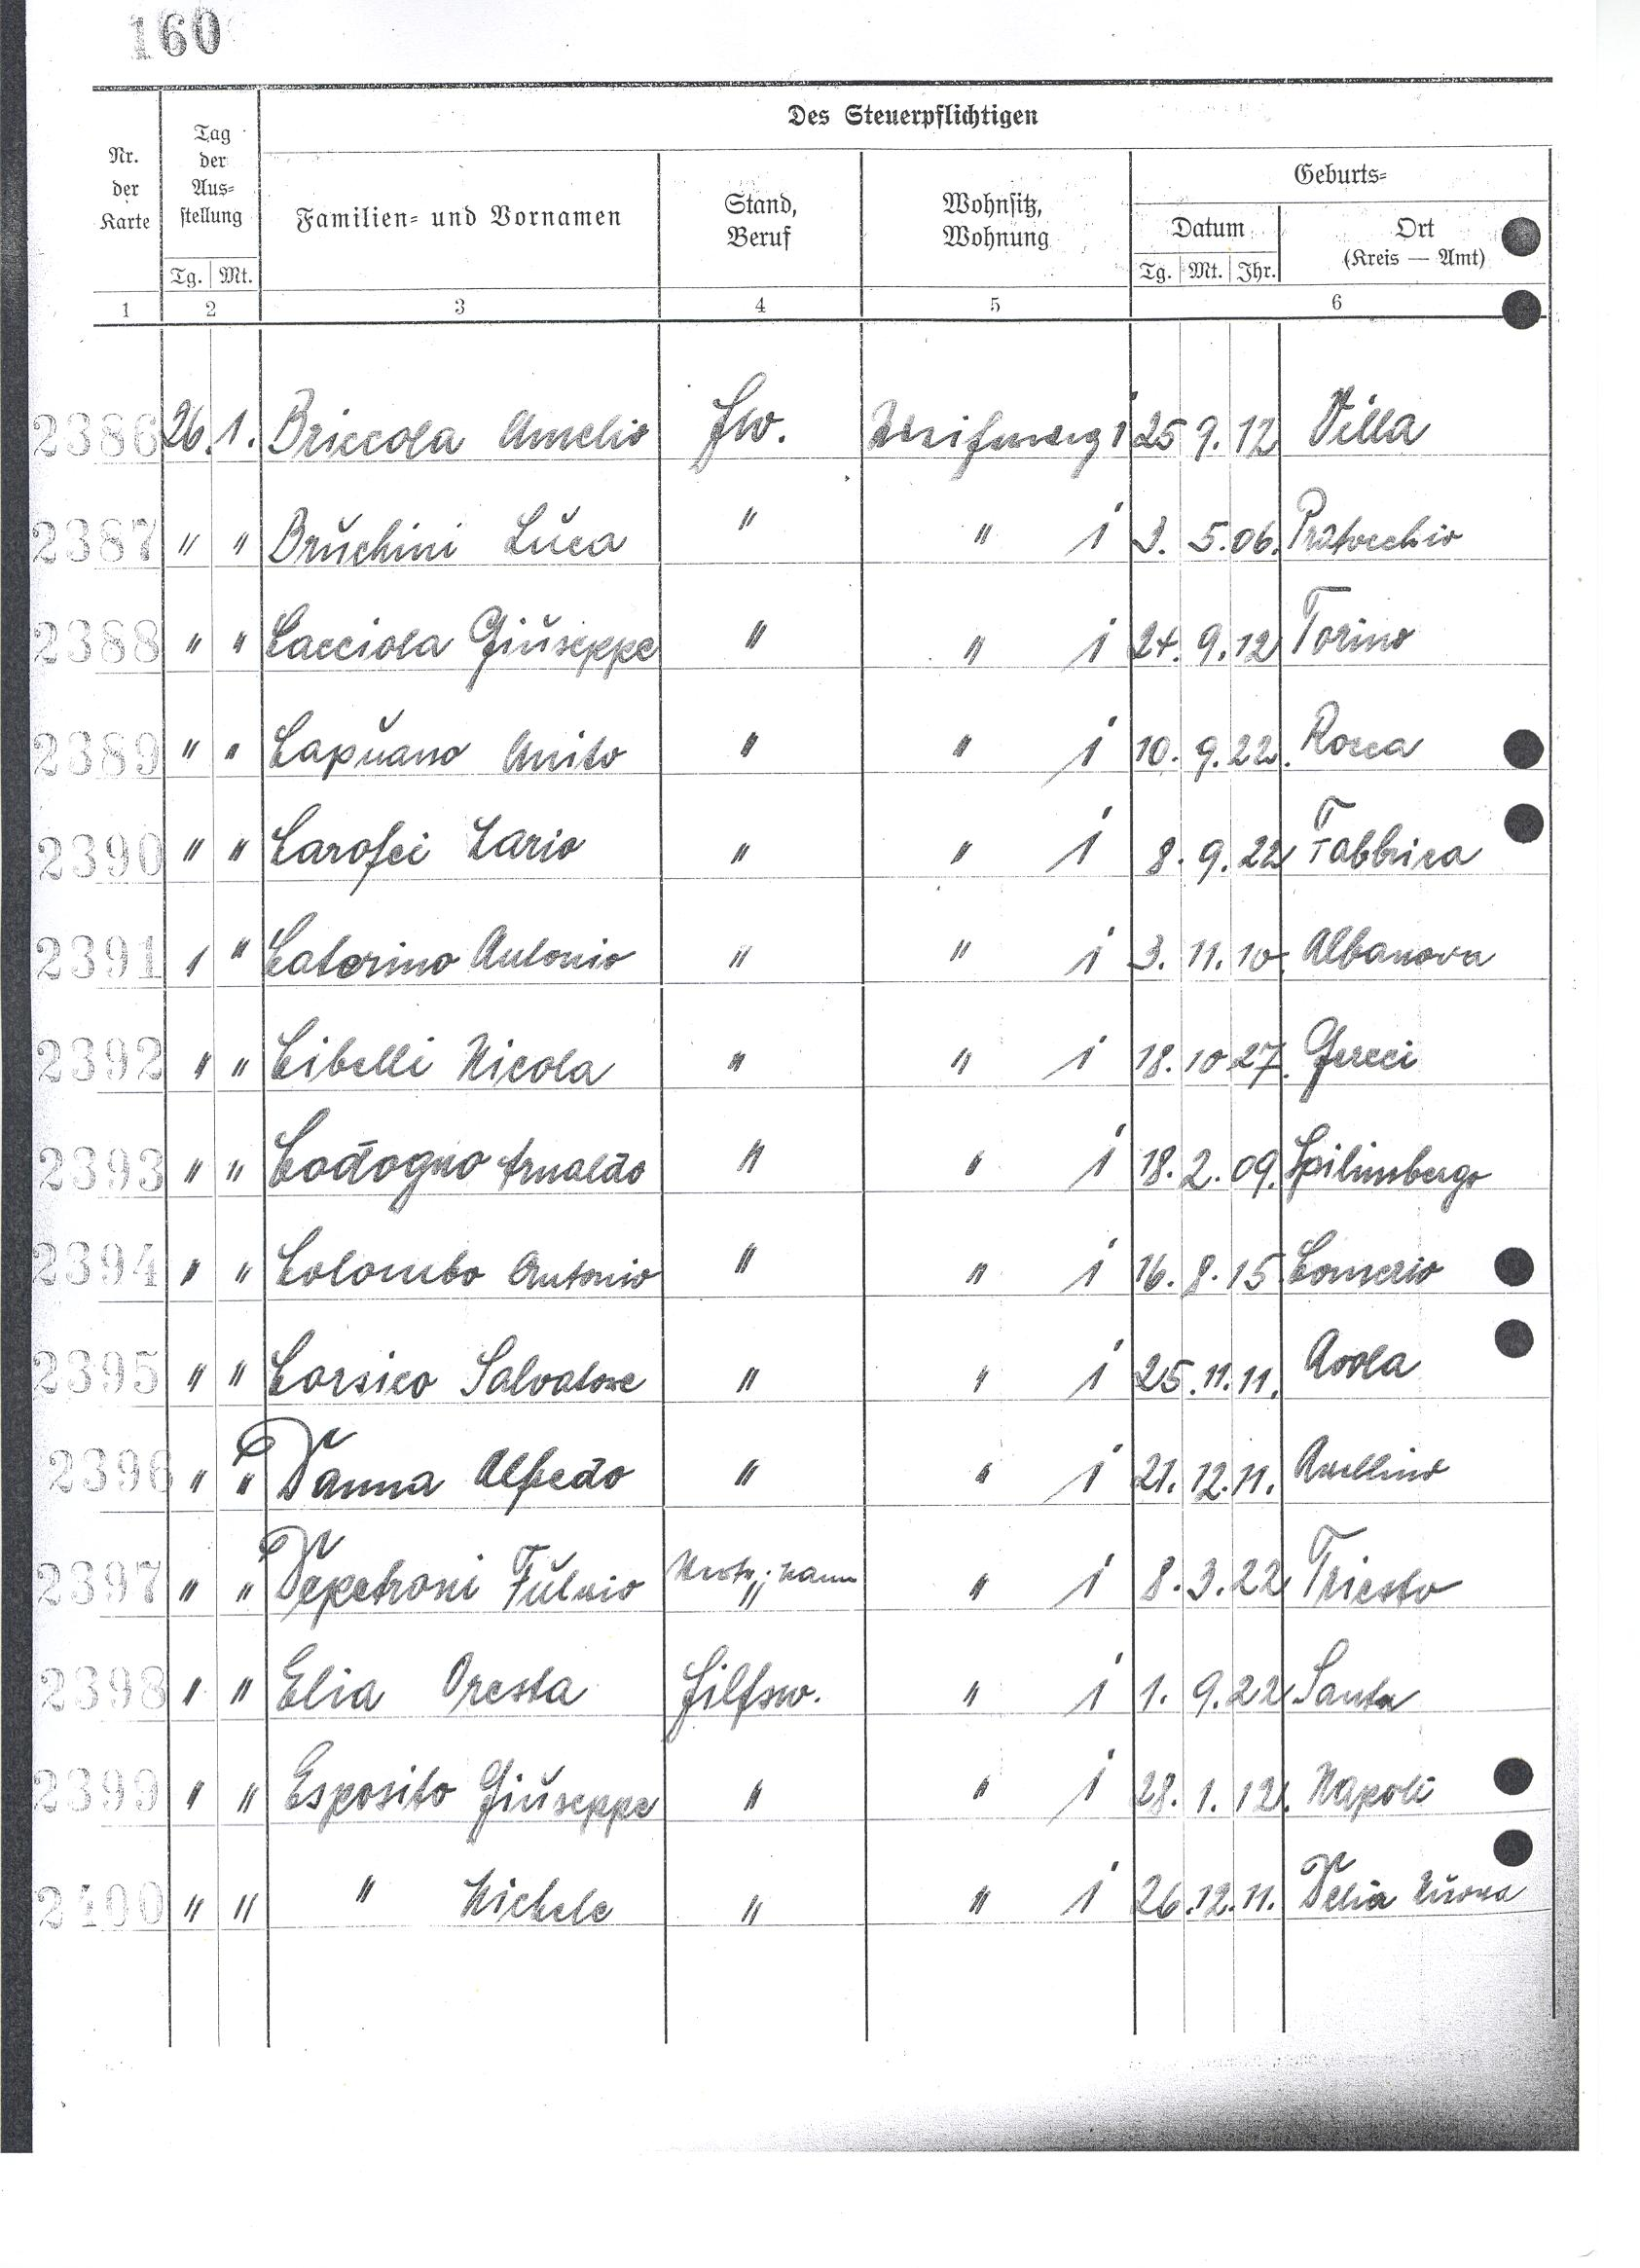 160
Des Steuerpflichtigen
Nr. der Karte
Tag der Aus=stellung
Familien= und Vornamen
Stand, Beruf
Wohnsitz, Wohnung
Geburts=
Datum
Ort (Kreis — Amt)
Tg. Mt. Tg. Mt. Jhr.
1 2 3 4 5 6
2386 26. 1. Briccola Amelio Hw. 1 25 9. 12 Villa
2387 " " Bruchini Luca " " 1 3. 5. 06. Pratovecchio
2388 " " Cacciola Giuseppe " " 1 24. 9. 12 Torino
2389 " " Capuano Anito " " 1 10. 9. 22. Rocca
2390 " " Carofei Cario " " 1 8. 9. 22 Fabbrica
2391 " " Caterino Antonio " " 1 3. 11. 10. Albanova
2392 " " Cibelli Nicola " " 1 18. 10 27.
2393 " " Codogno Arnaldo " " 1 18. 2. 09. Spilimbergo
2394 " " Colombo Antonio " " 1 16. 8. 15 Comerio
2395 " " Corsico Salvatore " " 1 25. 11. 11.
2396 " " Danna Alfredo " " 1 21. 12. 11. Avellino
2397 " " Depetroni Fulvio " 1 8. 3. 22 Triesto
2398 " " Elia Oresta Hilfsw. " 1 1. 9. 22 Santa
2399 " " Esposito Giuseppe " " 1 28. 1. 12. Napoli
2400 " " " Michele " " 1 26. 12. 11. Delia